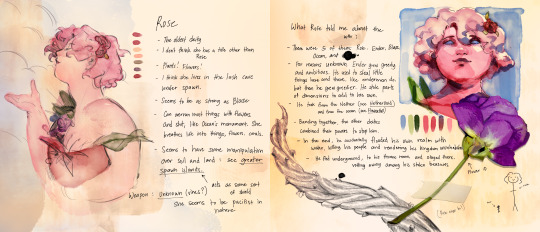 Rose
- The oldest deity
- I don't think she has a title other than
Rose
- Plants! Flowers!
- I think she lives in the lush cave
under spawn.
- Seems to be as strong as Blaze
- Can worsen most things with flowers
and shit, like Ocean's monument. She
breathes life into things, flowers, corals.
- Seems to have some manipulation
over soil and land: see greater
spawn islands.
acts as some sort
of shield
Weapon: Unknown (vines?)
She seems to be pacifist in
nature.
What Rose told me about the
- There were 5 of them: Rose, Ender, Blaze
Ocean, and
- For reasons unknown, Ender grew greedy
and ambitious. He used to steal little
things here and there, like endermen do,
but then he grew greedier. He stole parts
of dimensions to add to his own.
- He took from the Nether
- Banding together, the other deities
combined their power to stop him.
- In the end, he accidentally flooded his own realm with
water, killing his people and rendering his kingdom uninhabitable
- He fled underground, to his throne room, and stayed there,
rotting away among his stolen treasures.
Flower